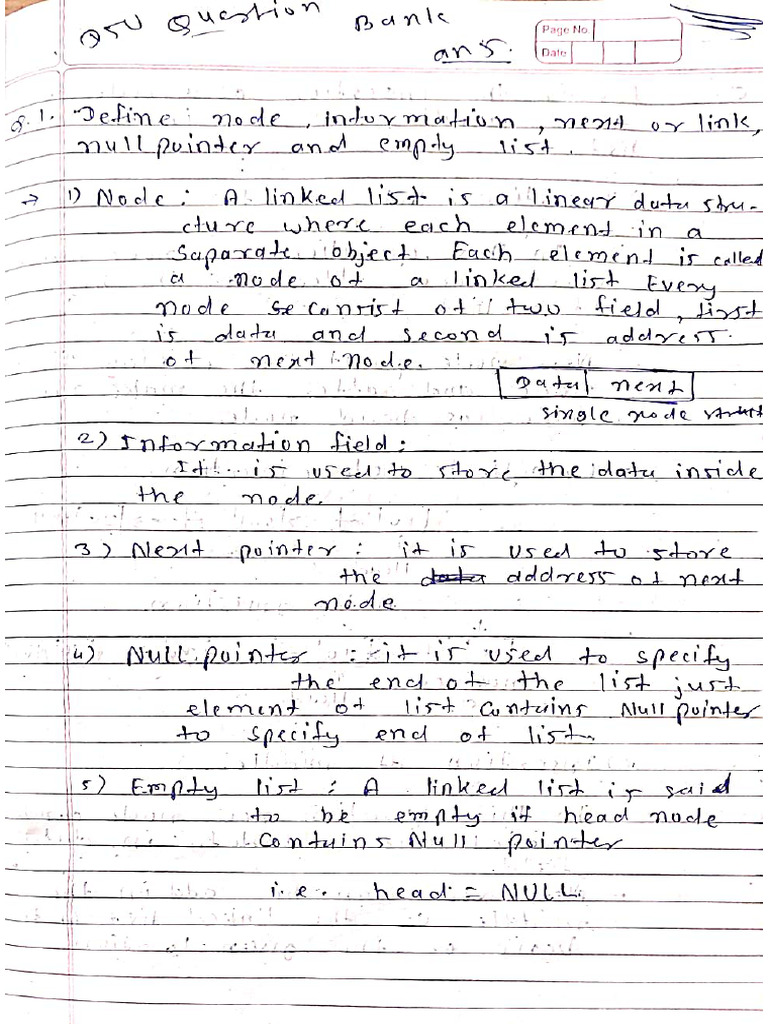 DSU Question Bank
ans.
Page No.
Date
Q.1. Define node, information, next or link,
null pointer and empty list.
→ 1) Node : A linked list is a linear data stru-
cture where each element in a
saparate object. Each element is called
a node of a linked list Every
node se consist of two field, first
is data and second is address
of next node.
Data next
single node struct
2) Information field :
It is used to store the data inside
the node.
3) Next pointer : it is used to store
the data address of next
node
4) Null pointer : it is used to specify
the end of the list just
element of list contains Null pointer
to specify end of list.
5) Empty list : A linked list is said
to be empty if head node
Contains Null pointer
i.e. head = NULL.